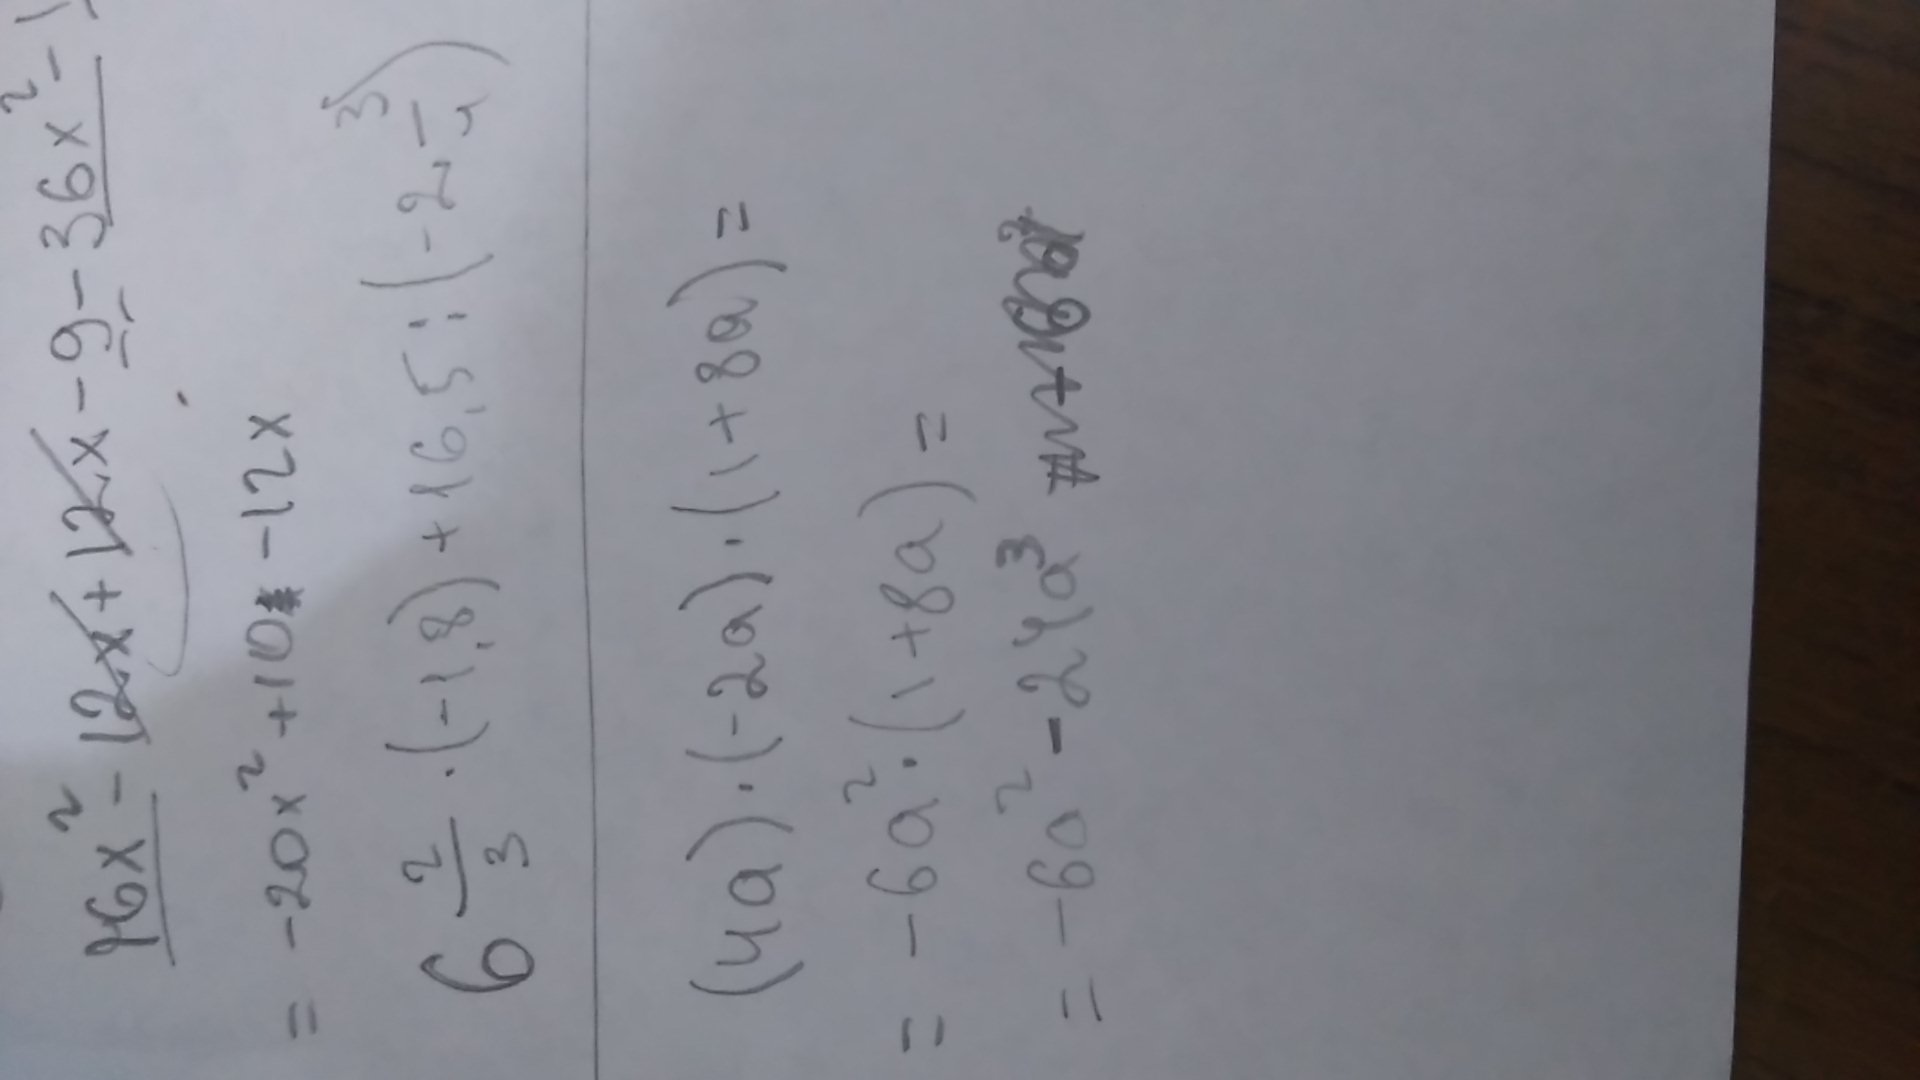 16x² - 12x + 12x - 9 - 36x² -
= -20x² + 10 - 12x
6 2/3 · (-1,8) + 16,5 : (-2 3/4)
(4a) · (-2a) · (1 + 8a) =
= -6a² · (1 + 8a) =
= -6a² - 24a³